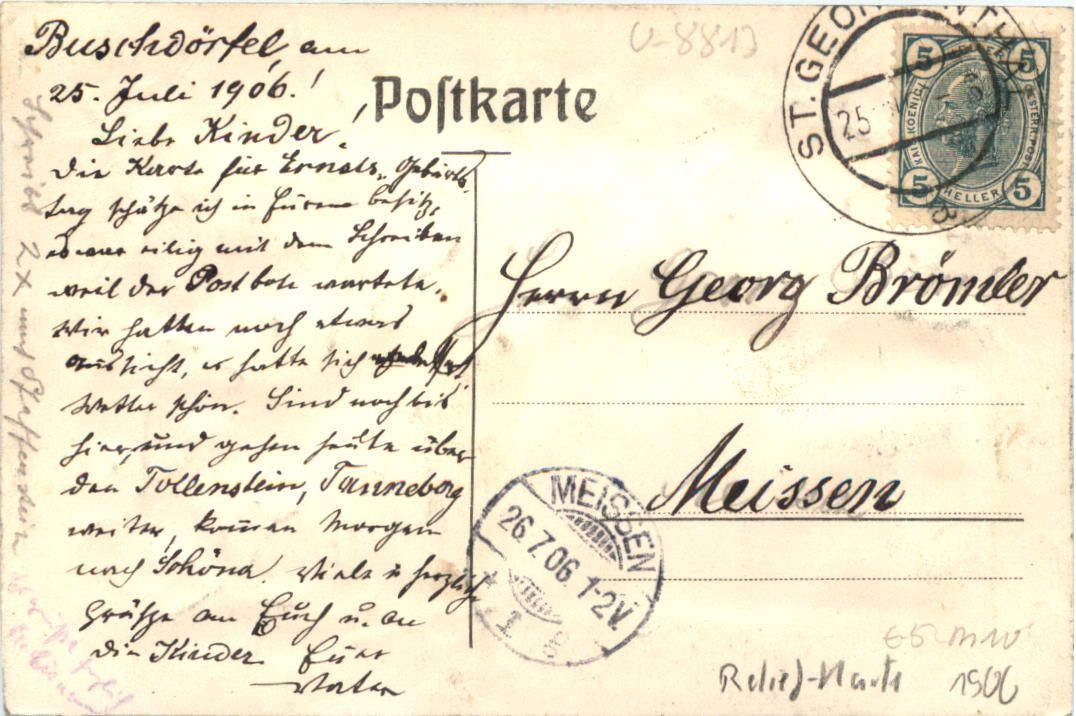 Buschdörfel, am
25. Juli 1906!
Liebe Kinder!
Die Karte für Ernsts Geburts-
tag schätze ich in Eurem Besitz,
es war eilig mit dem Schreiben
weil der Postbote wartete.
Wir hatten noch etwas
Aussicht, es hatte sich
Wetter schön. Sind noch bis
hier, und gehen heute über
den Tollenstein, Tanneberg
weiter, kommen Morgen
nach Schöna. Viele u herzliche
Grüße an Euch u. an
die Kinder Euer
Vater
Schreibt 2x
Postkarte
U-8813
ST. GEORGENTHAL
25
5 5
KAIS. KOENIGL. OESTERR. POST
5 HELLER 5
Herrn Georg Brömler
Meissen
MEISSEN
26.7.06. 1-2V.
1
Relief-Karte 1906